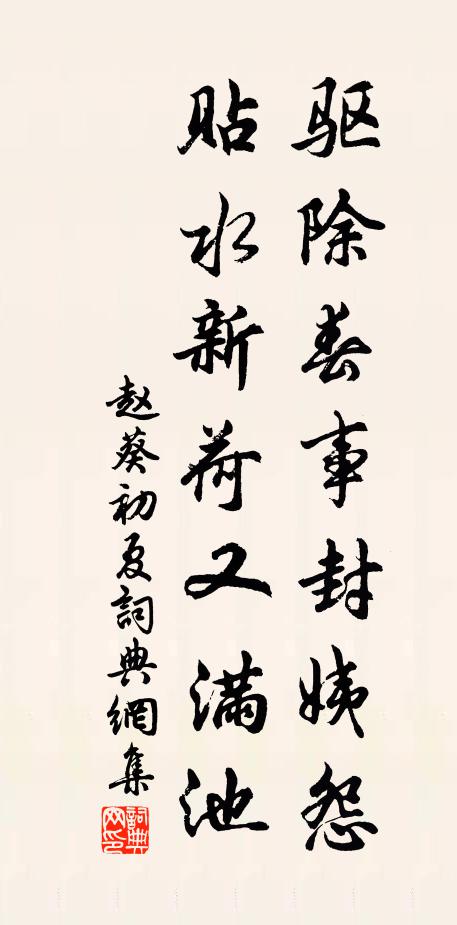 驱除春事封姨怨
贴水新荷又满池
赵葵初夏词典網集
詞典網印